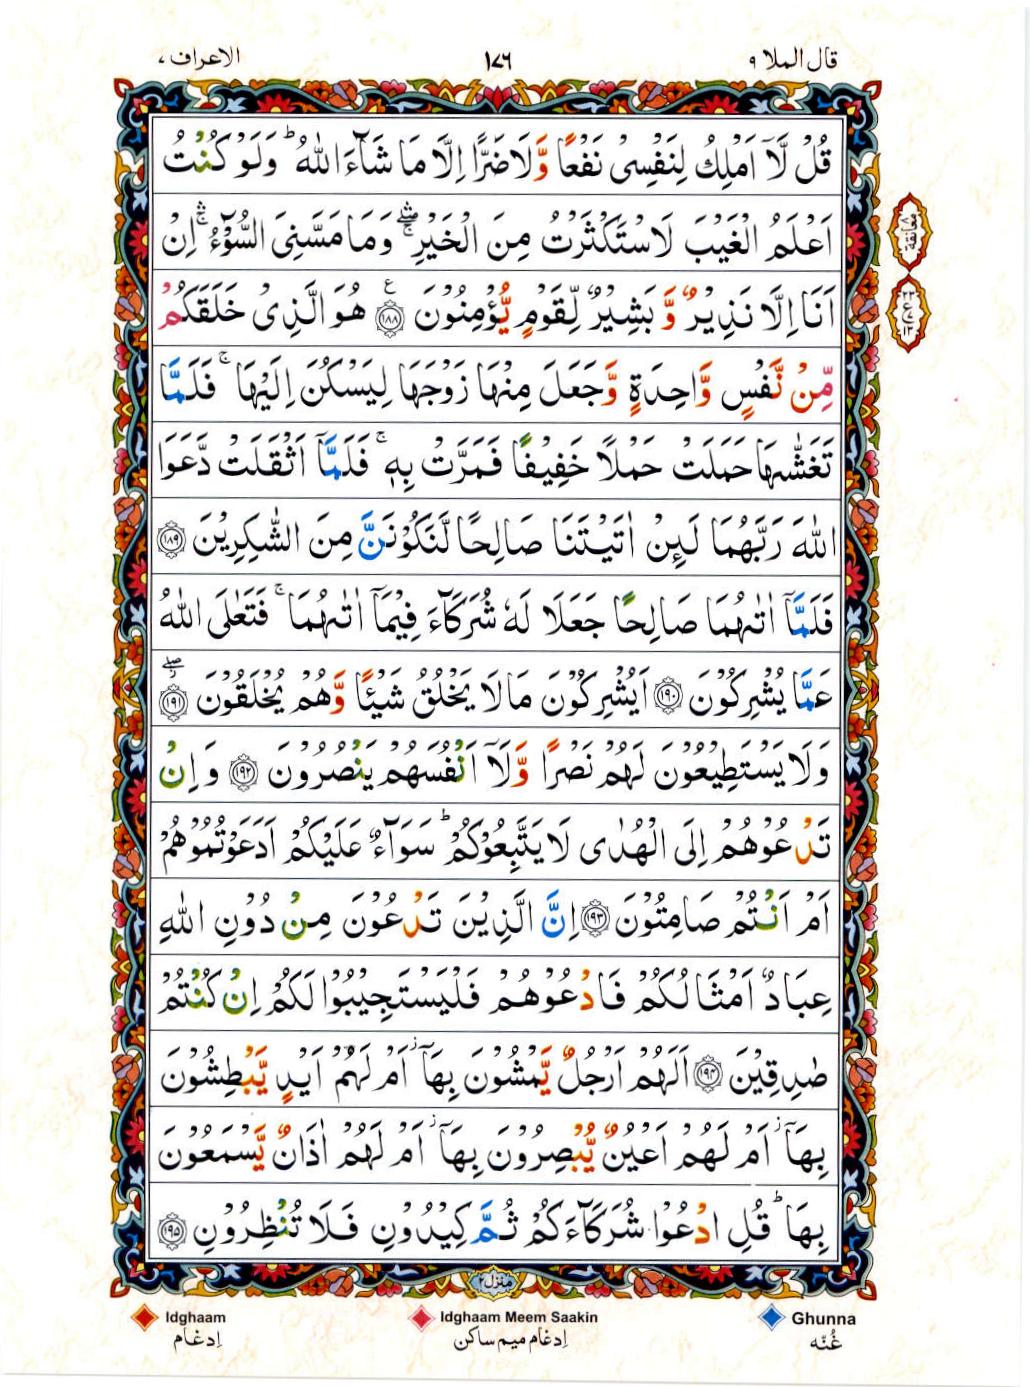 قال الملا ٩
١٧٦
الاعراف ٧
قُلْ لَّاۤ اَمْلِكُ لِنَفْسِىْ نَفْعًا وَّلَا ضَرًّا اِلَّا مَا شَآءَ اللّٰهُ ؕ وَلَوْ كُنْتُ
اَعْلَمُ الْغَيْبَ لَاسْتَكْثَرْتُ مِنَ الْخَيْرِ ۛۖۚ وَمَا مَسَّنِىَ السُّوْٓءُ ۛۚ اِنْ
معانقة ٨
اَنَا اِلَّا نَذِيْرٌ وَّبَشِيْرٌ لِّقَوْمٍ يُّؤْمِنُوْنَ ﴿١٨٨﴾ ع هُوَ الَّذِىْ خَلَقَكُمْ
مِّنْ نَّفْسٍ وَّاحِدَةٍ وَّجَعَلَ مِنْهَا زَوْجَهَا لِيَسْكُنَ اِلَيْهَا ۚ فَلَمَّا
تَغَشّٰٮهَا حَمَلَتْ حَمْلًا خَفِيْفًا فَمَرَّتْ بِهٖ ۚ فَلَمَّاۤ اَثْقَلَتْ دَّعَوَا
اللّٰهَ رَبَّهُمَا لَـئِنْ اٰتَيْتَنَا صَالِحًا لَّنَكُوْنَنَّ مِنَ الشّٰكِرِيْنَ ﴿١٨٩﴾
فَلَمَّاۤ اٰتٰٮهُمَا صَالِحًا جَعَلَا لَهٗ شُرَكَآءَ فِيْمَاۤ اٰتٰٮهُمَا ۚ فَتَعٰلَى اللّٰهُ
عَمَّا يُشْرِكُوْنَ ﴿١٩٠﴾ اَيُشْرِكُوْنَ مَا لَا يَخْلُقُ شَيْـًٔا وَّهُمْ يُخْلَقُوْنَ ﴿١٩١﴾ ۖ
وَلَا يَسْتَطِيْعُوْنَ لَهُمْ نَصْرًا وَّلَاۤ اَنْفُسَهُمْ يَنْصُرُوْنَ ﴿١٩٢﴾ وَاِنْ
تَدْعُوْهُمْ اِلَى الْهُدٰى لَا يَتَّبِعُوْكُمْ ؕ سَوَآءٌ عَلَيْكُمْ اَدَعَوْتُمُوْهُمْ
اَمْ اَنْتُمْ صَامِتُوْنَ ﴿١٩٣﴾ اِنَّ الَّذِيْنَ تَدْعُوْنَ مِنْ دُوْنِ اللّٰهِ
عِبَادٌ اَمْثَالُكُمْ فَادْعُوْهُمْ فَلْيَسْتَجِيْبُوْا لَكُمْ اِنْ كُنْتُمْ
صٰدِقِيْنَ ﴿١٩٤﴾ اَلَهُمْ اَرْجُلٌ يَّمْشُوْنَ بِهَاۤ ز اَمْ لَهُمْ اَيْدٍ يَّبْطِشُوْنَ
بِهَاۤ ز اَمْ لَهُمْ اَعْيُنٌ يُّبْصِرُوْنَ بِهَاۤ ز اَمْ لَهُمْ اٰذَانٌ يَّسْمَعُوْنَ
بِهَا ؕ قُلِ ادْعُوْا شُرَكَآءَكُمْ ثُمَّ كِيْدُوْنِ فَلَا تُنْظِرُوْنِ ﴿١٩٥﴾
منزل ٢
Idghaam
اِدغام
Idghaam Meem Saakin
اِدغام میم ساکن
Ghunna
غُنّه